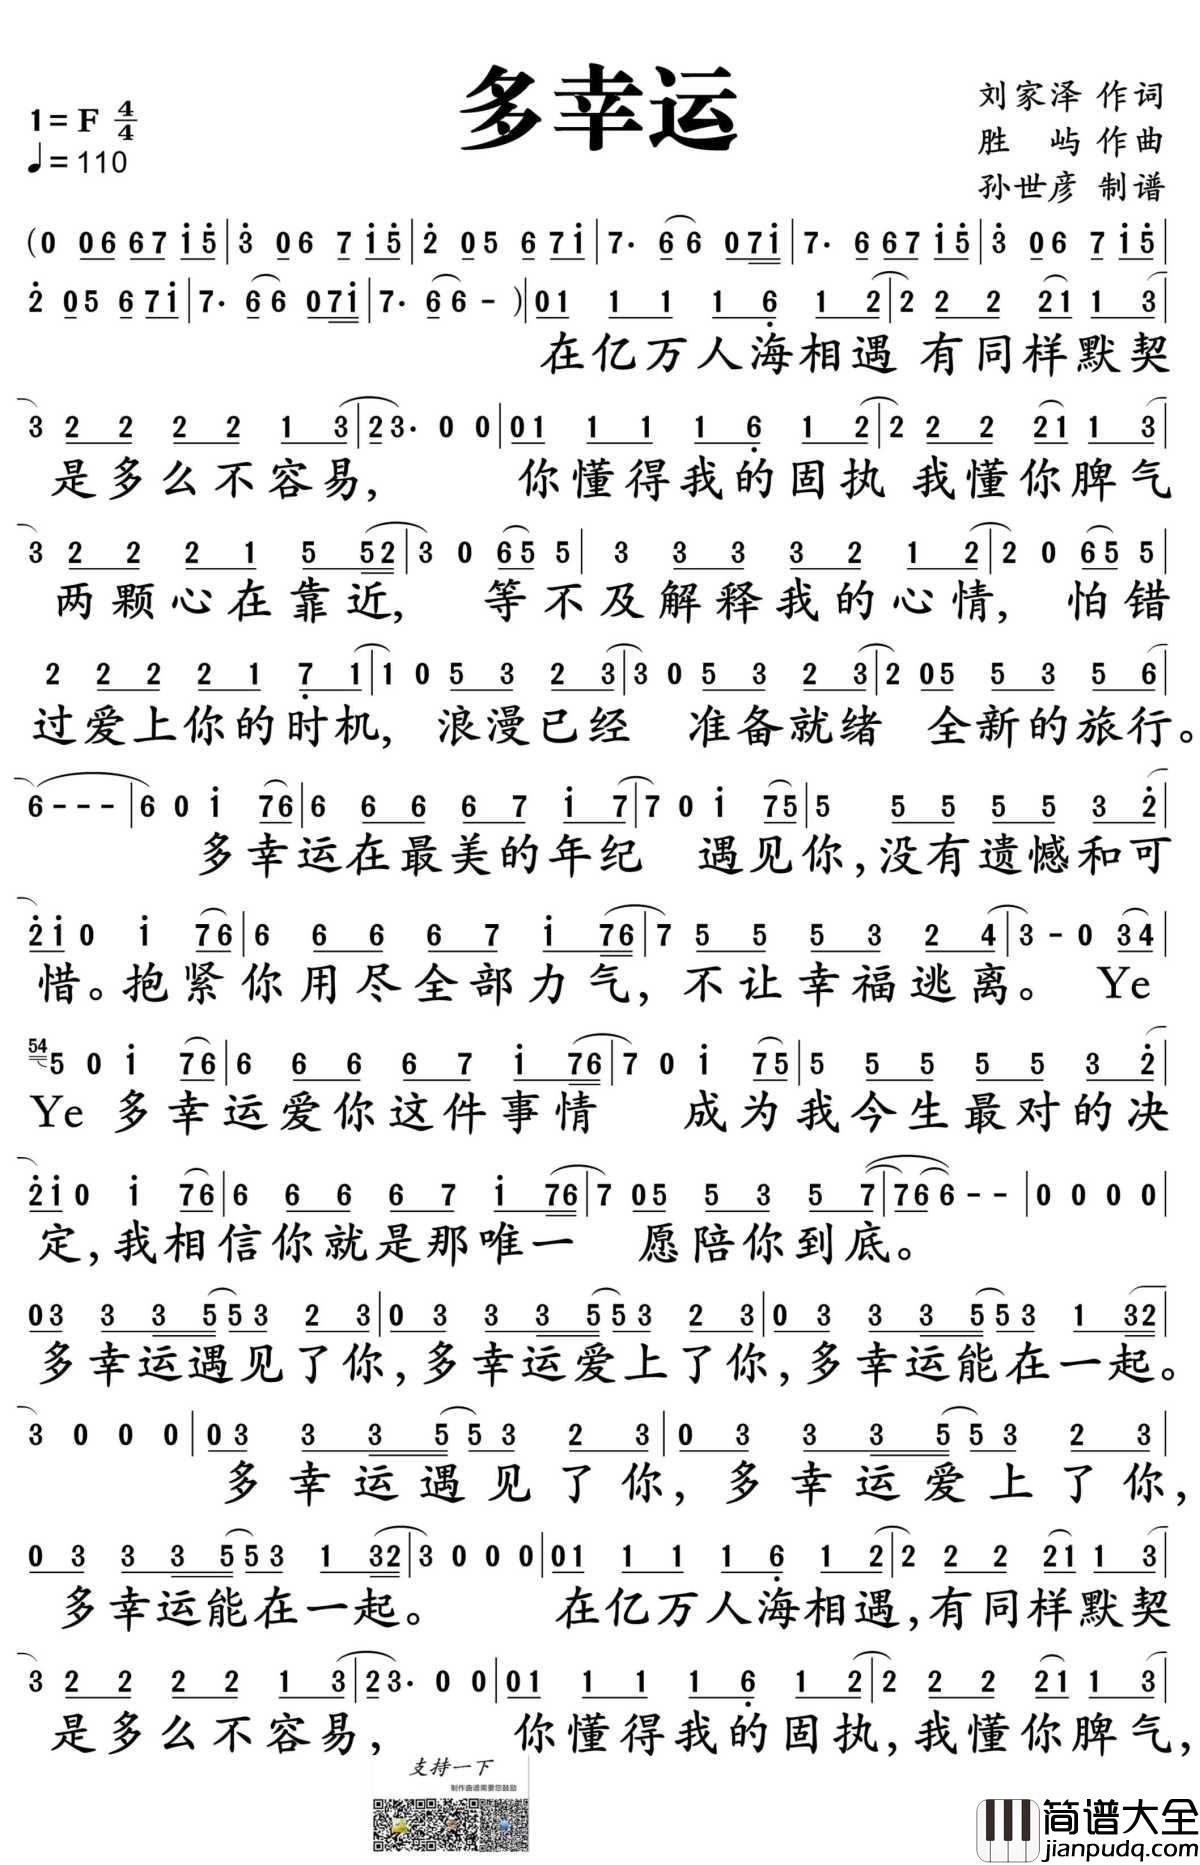 多幸运
1=F 4/4
♩=110
刘家泽 作词
胜 屿 作曲
孙世彦 制谱
(0 06 67 i5|3 06 7 i5|2 05 6 7i|7· 6 6 07i|7· 6 67 i5|3 06 7 i5|
2 05 6 7i|7· 6 6 07i|7· 6 6 - )|01 1 1 1 6 1 2|2 2 2 21 1 3|
在亿万人海相遇 有同样默契
3 2 2 2 2 1 3|23· 0 0|01 1 1 1 6 1 2|2 2 2 21 1 3|
是多么不容易, 你懂得我的固执 我懂你脾气
3 2 2 2 1 5 52|3 0 65 5|3 3 3 3 2 1 2|2 0 65 5|
两颗心在靠近, 等不及解释我的心情, 怕错
2 2 2 2 1 7 1|1 0 5 3 2 3|3 0 5 3 2 3|2 05 5 3 5 6|
过爱上你的时机, 浪漫已经 准备就绪 全新的旅行。
6 - - -|6 0 i 76|6 6 6 6 7 i 7|7 0 i 75|5 5 5 5 5 3 2|
多幸运在最美的年纪 遇见你,没有遗憾和可
2i 0 i 76|6 6 6 6 7 i 76|7 5 5 5 3 2 4|3 - 0 34|
惜。抱紧你用尽全部力气, 不让幸福逃离。 Ye
54 5 0 i 76|6 6 6 6 7 i 76|7 0 i 75|5 5 5 5 5 3 2|
Ye 多幸运爱你这件事情 成为我今生最对的决
2i 0 i 76|6 6 6 6 7 i 76|7 05 5 3 5 7|766 - -|0 0 0 0|
定,我相信你就是那唯一 愿陪你到底。
03 3 3 5 53 2 3|0 3 3 3 5 53 2 3|0 3 3 3 5 53 1 32|
多幸运遇见了你,多幸运爱上了你,多幸运能在一起。
3 0 0 0|03 3 3 5 53 2 3|0 3 3 3 5 53 2 3|
多幸运遇见了你,多幸运爱上了你,
0 3 3 3 5 53 1 32|3 0 0 0|01 1 1 1 6 1 2|2 2 2 21 1 3|
多幸运能在一起。 在亿万人海相遇,有同样默契
3 2 2 2 2 1 3|23· 0 0|01 1 1 1 6 1 2|2 2 2 21 1 3|
是多么不容易, 你懂得我的固执,我懂你脾气,
支持一下
制作曲谱需要您鼓励
简谱大全
jianpudq.com